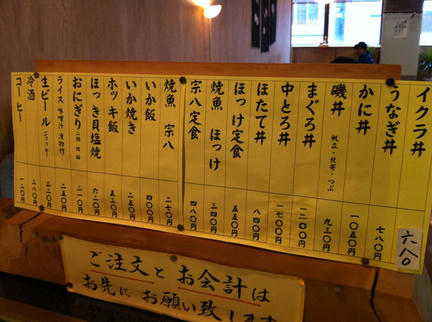 イクラ丼 六八〇
うなぎ丼 七八〇円
かに丼 一〇五〇円
磯丼 帆立・北寄・つぶ 九三〇円
まぐろ丼 一二〇〇円
中とろ丼 一七〇〇円
ほたて丼 八四〇円
ほっけ定食 五五〇円
焼魚 ほっけ 三四〇円
宗八定食 四八〇円
焼魚 宗八 二七〇円
いか飯 四〇〇円
いか焼き 二五〇円
ホッキ飯 五三〇円
ほっき貝塩焼 六二〇円
おにぎり 二一〇円
ライス 味噌汁 漬物付
生ビール ジョッキ
冷酒 三八〇円
コーヒー 一二〇円
ご注文とお会計は
お先にお願い致します